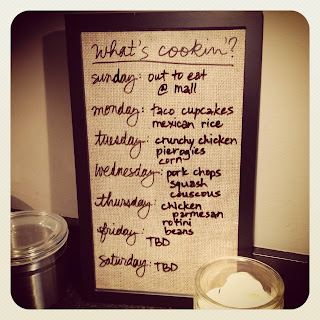 what's cookin'?
sunday: out to eat
@ mall
monday: taco cupcakes
mexican rice
tuesday: crunchy chicken
pierogies
corn
wednesday: pork chops
squash
couscous
thursday: chicken
parmesan
rotini
friday: beans
TBD
saturday: TBD